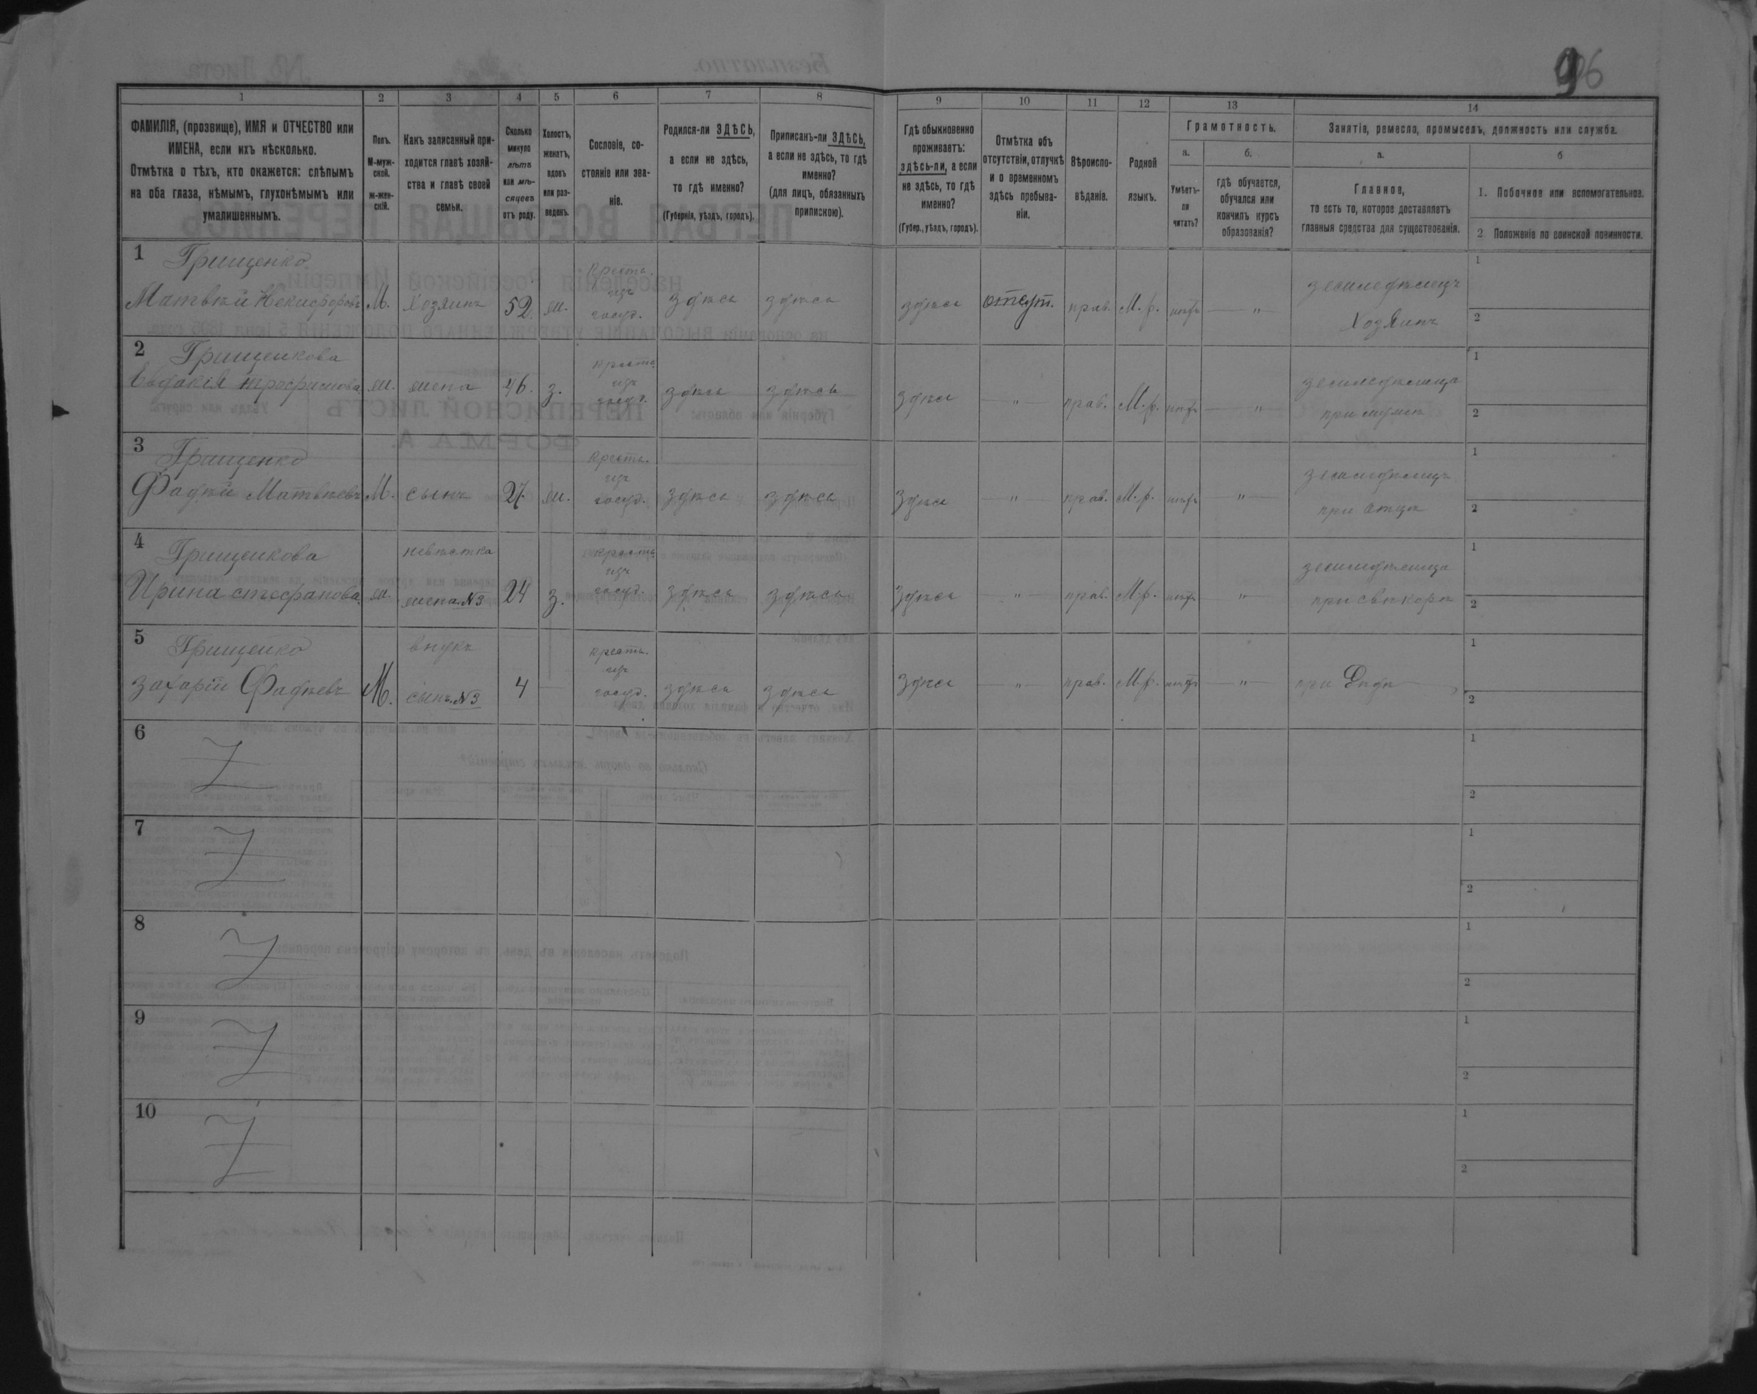 96
1 2 3 4 5 6 7 8 9 10 11 12 13 14
ФАМИЛІЯ, (прозвище), ИМЯ и ОТЧЕСТВО или
ИМЕНА, если ихъ нѣсколько.
Отмѣтка о тѣхъ, кто окажется: слѣпымъ
на оба глаза, нѣмымъ, глухонѣмымъ или
умалишеннымъ.
Полъ.
М-муж-
ской.
ж-жен-
скій.
Какъ записанный при-
ходится главѣ хозяй-
ства и главѣ своей
семьи.
Сколько
минуло
лѣтъ
или мѣ-
сяцевъ
отъ роду.
Холостъ,
женатъ,
вдовъ
или раз-
веденъ.
Сословіе, со-
стояніе или зва-
ніе.
Родился-ли ЗДѢСЬ,
а если не здѣсь,
то гдѣ именно?
(Губернія, уѣздъ, городъ).
Приписанъ-ли ЗДѢСЬ,
а если не здѣсь, то гдѣ
именно?
(для лицъ, обязанныхъ
припискою).
Гдѣ обыкновенно
проживаетъ:
здѣсь-ли, а если
не здѣсь, то гдѣ
именно?
(Губер., уѣздъ, городъ).
Отмѣтка объ
отсутствіи, отлучкѣ
и о временномъ
здѣсь пребыва-
ніи.
Вѣроиспо-
вѣданіе.
Родной
языкъ.
Грамотность.
а.
Умѣетъ-
ли
читать?
б.
гдѣ обучается,
обучался или
кончилъ курсъ
образованія?
Занятіе, ремесло, промыселъ, должность или служба.
а.
Главное,
то есть то, которое доставляетъ
главныя средства для существованія.
б
1. Побочное или вспомогательное.
2 Положеніе по воинской повинности.
1 Грищенко
Матвѣй Никифоровъ М. Хозяинъ 52 ж. крестъ. изъ госуд. здѣсь здѣсь здѣсь отсут. прав. М. р. нѣтъ — „ — земледѣлецъ Хозяинъ 1 2
2 Грищенкова
Евдокея Трофимова ж. жена 46. з. крестъ. изъ госуд. здѣсь здѣсь здѣсь — „ — прав. М. р. нѣтъ — „ — земледѣлица при мужѣ 1 2
3 Грищенко
Фадѣй Матвѣевъ М. сынъ 27. ж. крестъ. изъ госуд. здѣсь здѣсь здѣсь — „ — прав. М. р. нѣтъ — „ — земледѣлецъ при отцѣ 1 2
4 Грищенкова
Ирина Стефанова ж. невѣстка жена №3 24 з. крестъ. изъ госуд. здѣсь здѣсь здѣсь — „ — прав. М. р. нѣтъ — „ — земледѣлица при свѣкорѣ 1 2
5 Грищенко
Захарій Фадѣевъ М. внукъ сынъ №3 4 — крестъ. изъ госуд. здѣсь здѣсь здѣсь — „ — прав. М. р. нѣтъ — „ — при Дѣдѣ 1 2
6 1 2
7 1 2
8 1 2
9 1 2
10 1 2